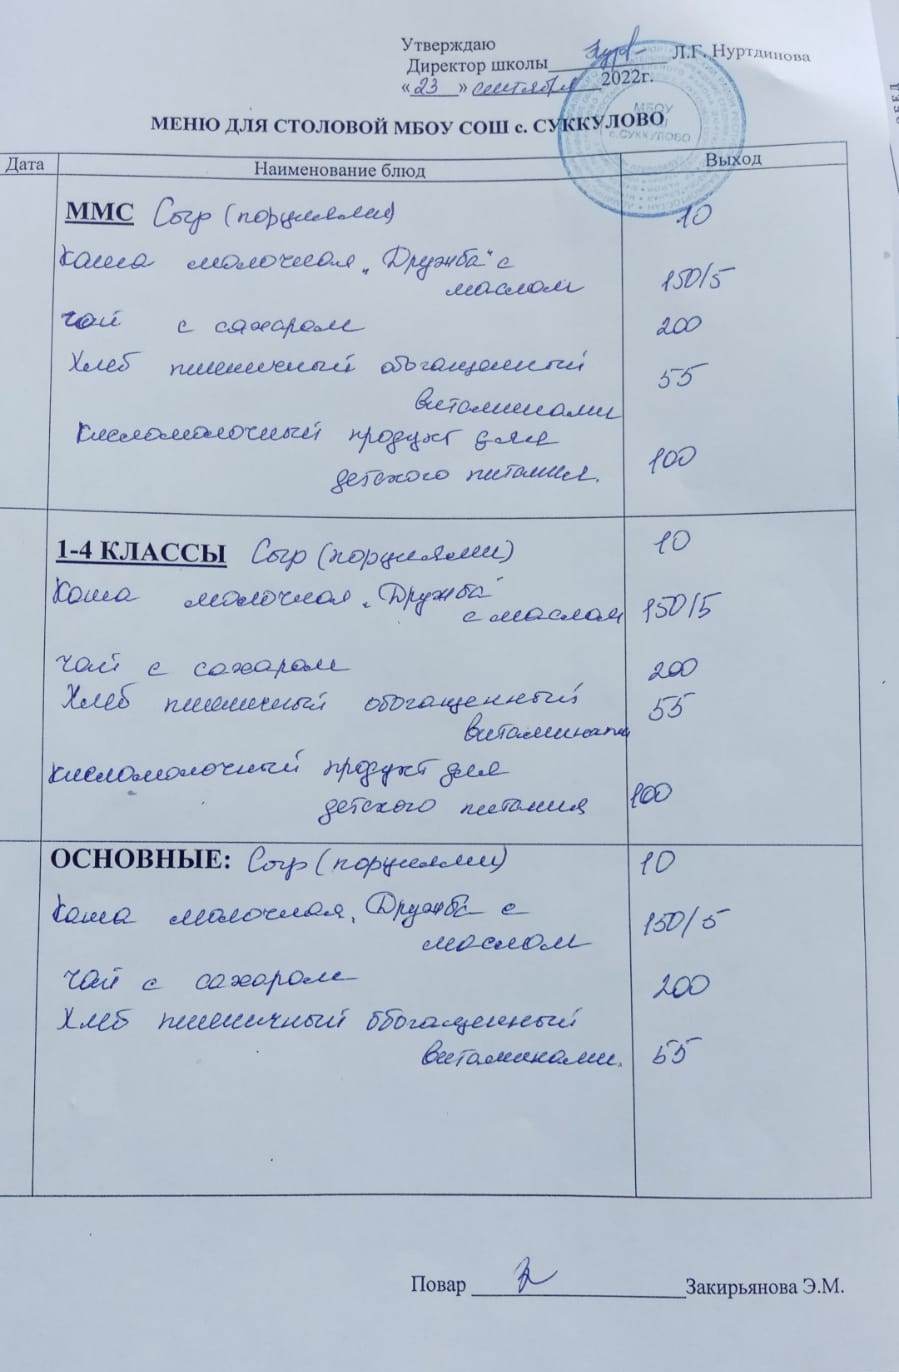 Утверждаю
Директор школы Л.Г. Нуртдинова
«23» сентября 2022г.
МБОУ
с.СУККУЛОВО
МЕНЮ ДЛЯ СТОЛОВОЙ МБОУ СОШ с. СУККУЛОВО
Дата Наименование блюд Выход
ММС Сыр (порциями) 10
Каша молочная „Дружба" с
маслом 150/5
Чай с сахаром 200
Хлеб пшеничный обогащенный 55
витаминами
Кисломолочный продукт для
детского питания. 100
1-4 КЛАССЫ Сыр (порциями) 10
Каша молочная „Дружба"
с маслом 150/5
Чай с сахаром 200
Хлеб пшеничный обогащенный 55
витаминами
Кисломолочный продукт для
детского питания 100
ОСНОВНЫЕ: Сыр (порциями) 10
Каша молочная „Дружба с
маслом 150/5
Чай с сахаром 200
Хлеб пшеничный обогащенный
витаминами. 55
Повар Закирьянова Э.М.